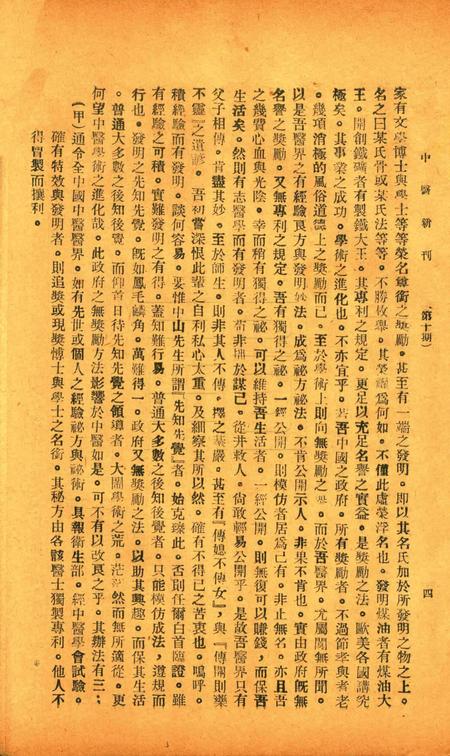 中醫新刊
(第十期)
四
家有文學博士與學士等等榮名銜之獎勵。甚至有一端之發明。即以其名氏加於所發明之物之上。
名之曰某氏骨或某氏法等等。不勝枚舉。其榮譽爲何如。不僅此虛榮浮名也。發明煤油者有煤油大
王。開創鐵礦者有製鐵大王。其專利之規定。更足以充足名譽之實益。是獎勵之法。歐美各國講究
極矣。其事業之成功。學術之進化也。不亦宜乎。若吾中國之政府。所有獎勵者。不過節孝與耆老
。幾項消極的風俗道德上之獎勵而已。至於學術上則向無獎勵之舉。而於吾醫界。尤屬闃無所聞。
以是吾醫界之有經驗良方與發明妙法。成爲秘方秘法。不肯公開示人。非果不肯也。實由政府既無
名譽之獎勵。又無專利之規定。吾有獨得之秘。一經公開。則模仿者居爲己有。非止無名。亦且吾
之幾費心血與光陰。幸而稍有獨得之祕。可以維持吾生活者。一經公開。則無復可以賺錢,而保吾
生活矣。然則有志醫學而有發明者。苟非拙於謀己。從井救人。尙敢輕易公開乎。是故吾醫界只有
父子相傳。肯盡其妙。至於師生。則非其人不傳。擇之綦嚴。甚至有『傳媳不傳女』,與『傳開則藥
不靈』之遺諺。吾初嘗深恨此輩之自利私心太重。及細察其所以然。確有不得已之苦衷也。嗚呼。
積經驗而有發明。談何容易。要惟中山先生所謂『先知先覺』者。始克臻此。否則任爾白首臨證。雖
有經驗之可積。實難發明之有得。蓋知難行易。普通大多數之後知後覺者。只能模仿成法,遵規而
行也。發明之先知先覺。既如鳳毛麟角。萬難得一。政府又無獎勵之法。以助其興趣。而保其生活
。普通大多數之後知後覺。而仰首日待先知先覺之領導者。大鬧學術之荒。茫茫然而無所適從。更
何望中醫學術之進化哉。此政府之無獎勵方法影響於中醫如是。可不有以改良之乎。其辦法有三:
(甲)通令全中國中醫醫界。如有先世或個人之經驗祕方與祕術。具報衛生部。經中醫學會試驗。
確有特效與發明者。則追獎或現獎博士與學士之名銜。其秘方由各該醫士獨製專利。他人不
得冒製而攘利。